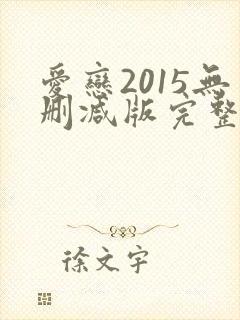 愛戀2015無
刪減版完整
徐文宇